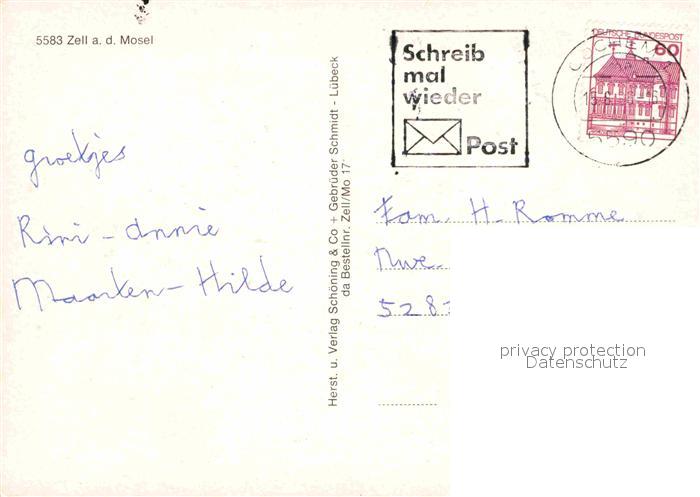 5583 Zell a. d. Mosel
groetjes
Rini - Annie
Maarten - Hilde
Herst. u. Verlag Schöning & Co + Gebrüder Schmidt - Lübeck
da Bestellnr. Zell/Mo 17
Schreib
mal
wieder
Post
DEUTSCHE BUNDESPOST
60
COCHEM
5590
Fam. H. Romme
Nwe.
528
privacy protection
Datenschutz